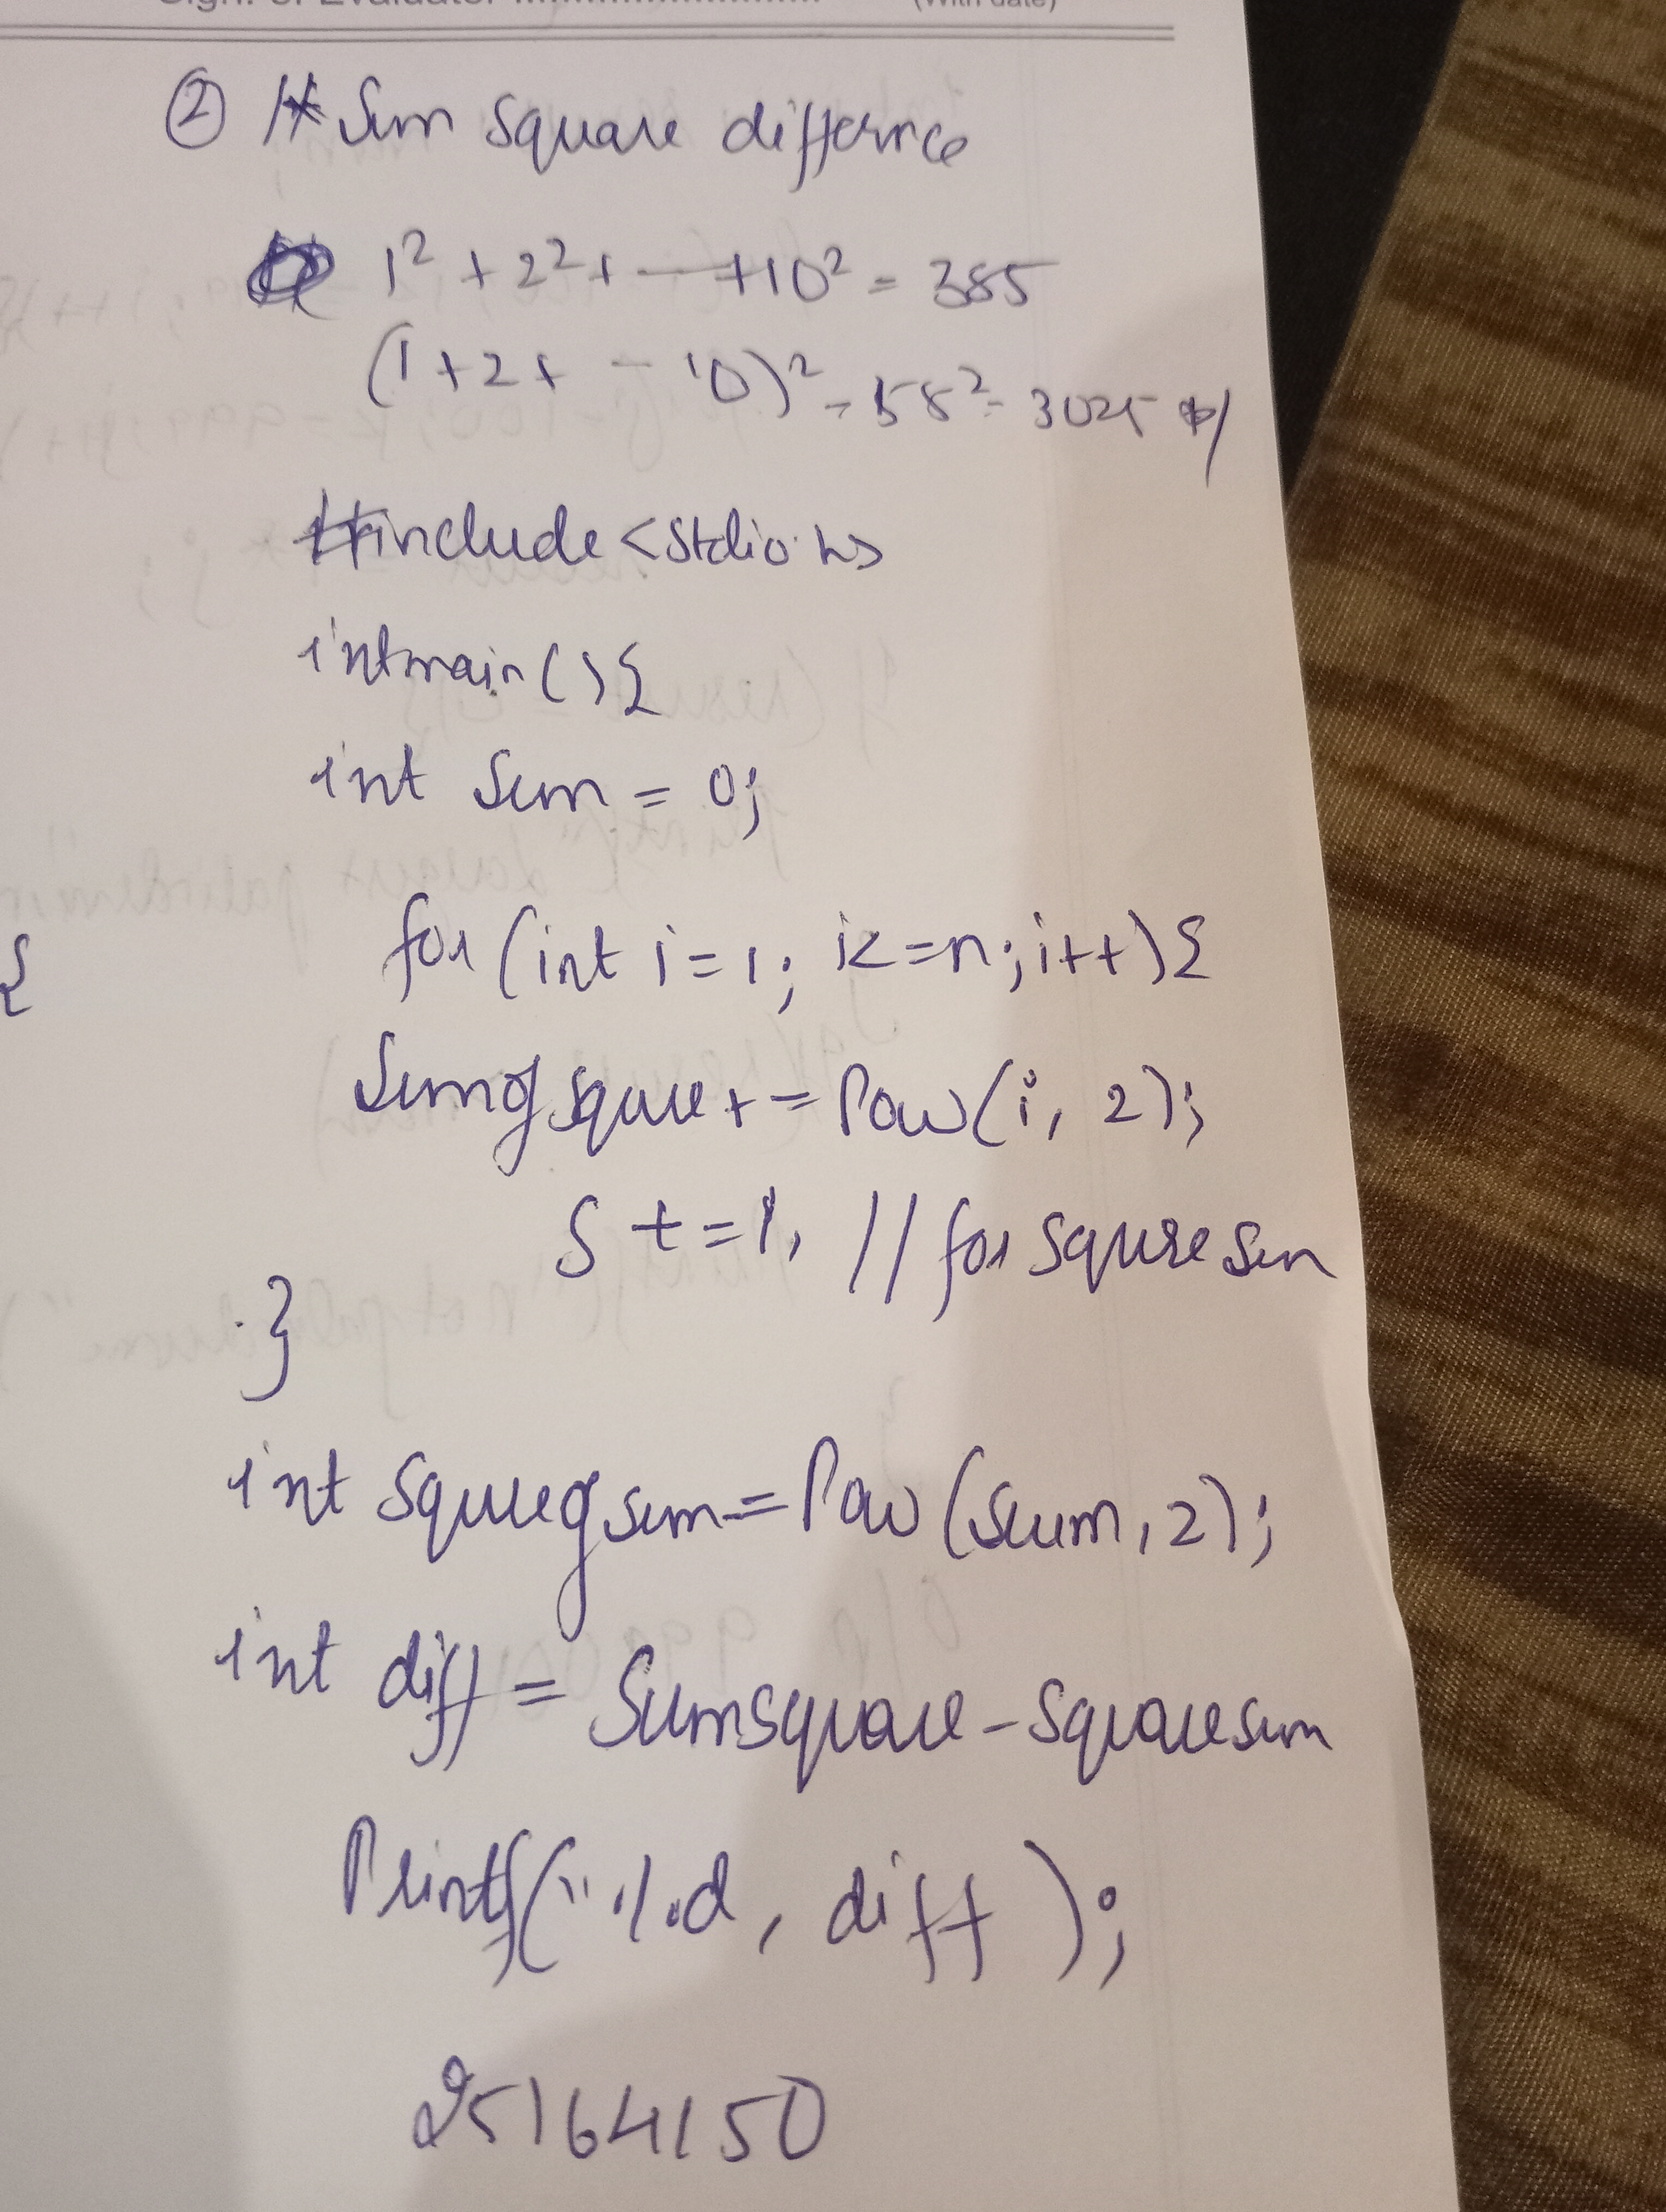 Sign. of Evaluator ........................ (With date)
② /* Sum square differnce
1² + 2² + — +10² = 385
(1+2+ - 10)² = 55² = 3025 */
#include <stdio.h>
int main () {
int sum = 0;
for (int i=1; i<=n; i++) {
{
Sumof squre += Pow(i, 2);
S += i, // for squre sum
}
int squreof sum = Pow (sum, 2);
int diff = Sumsquare - squaresum
Printf(" %d, diff );
25164150